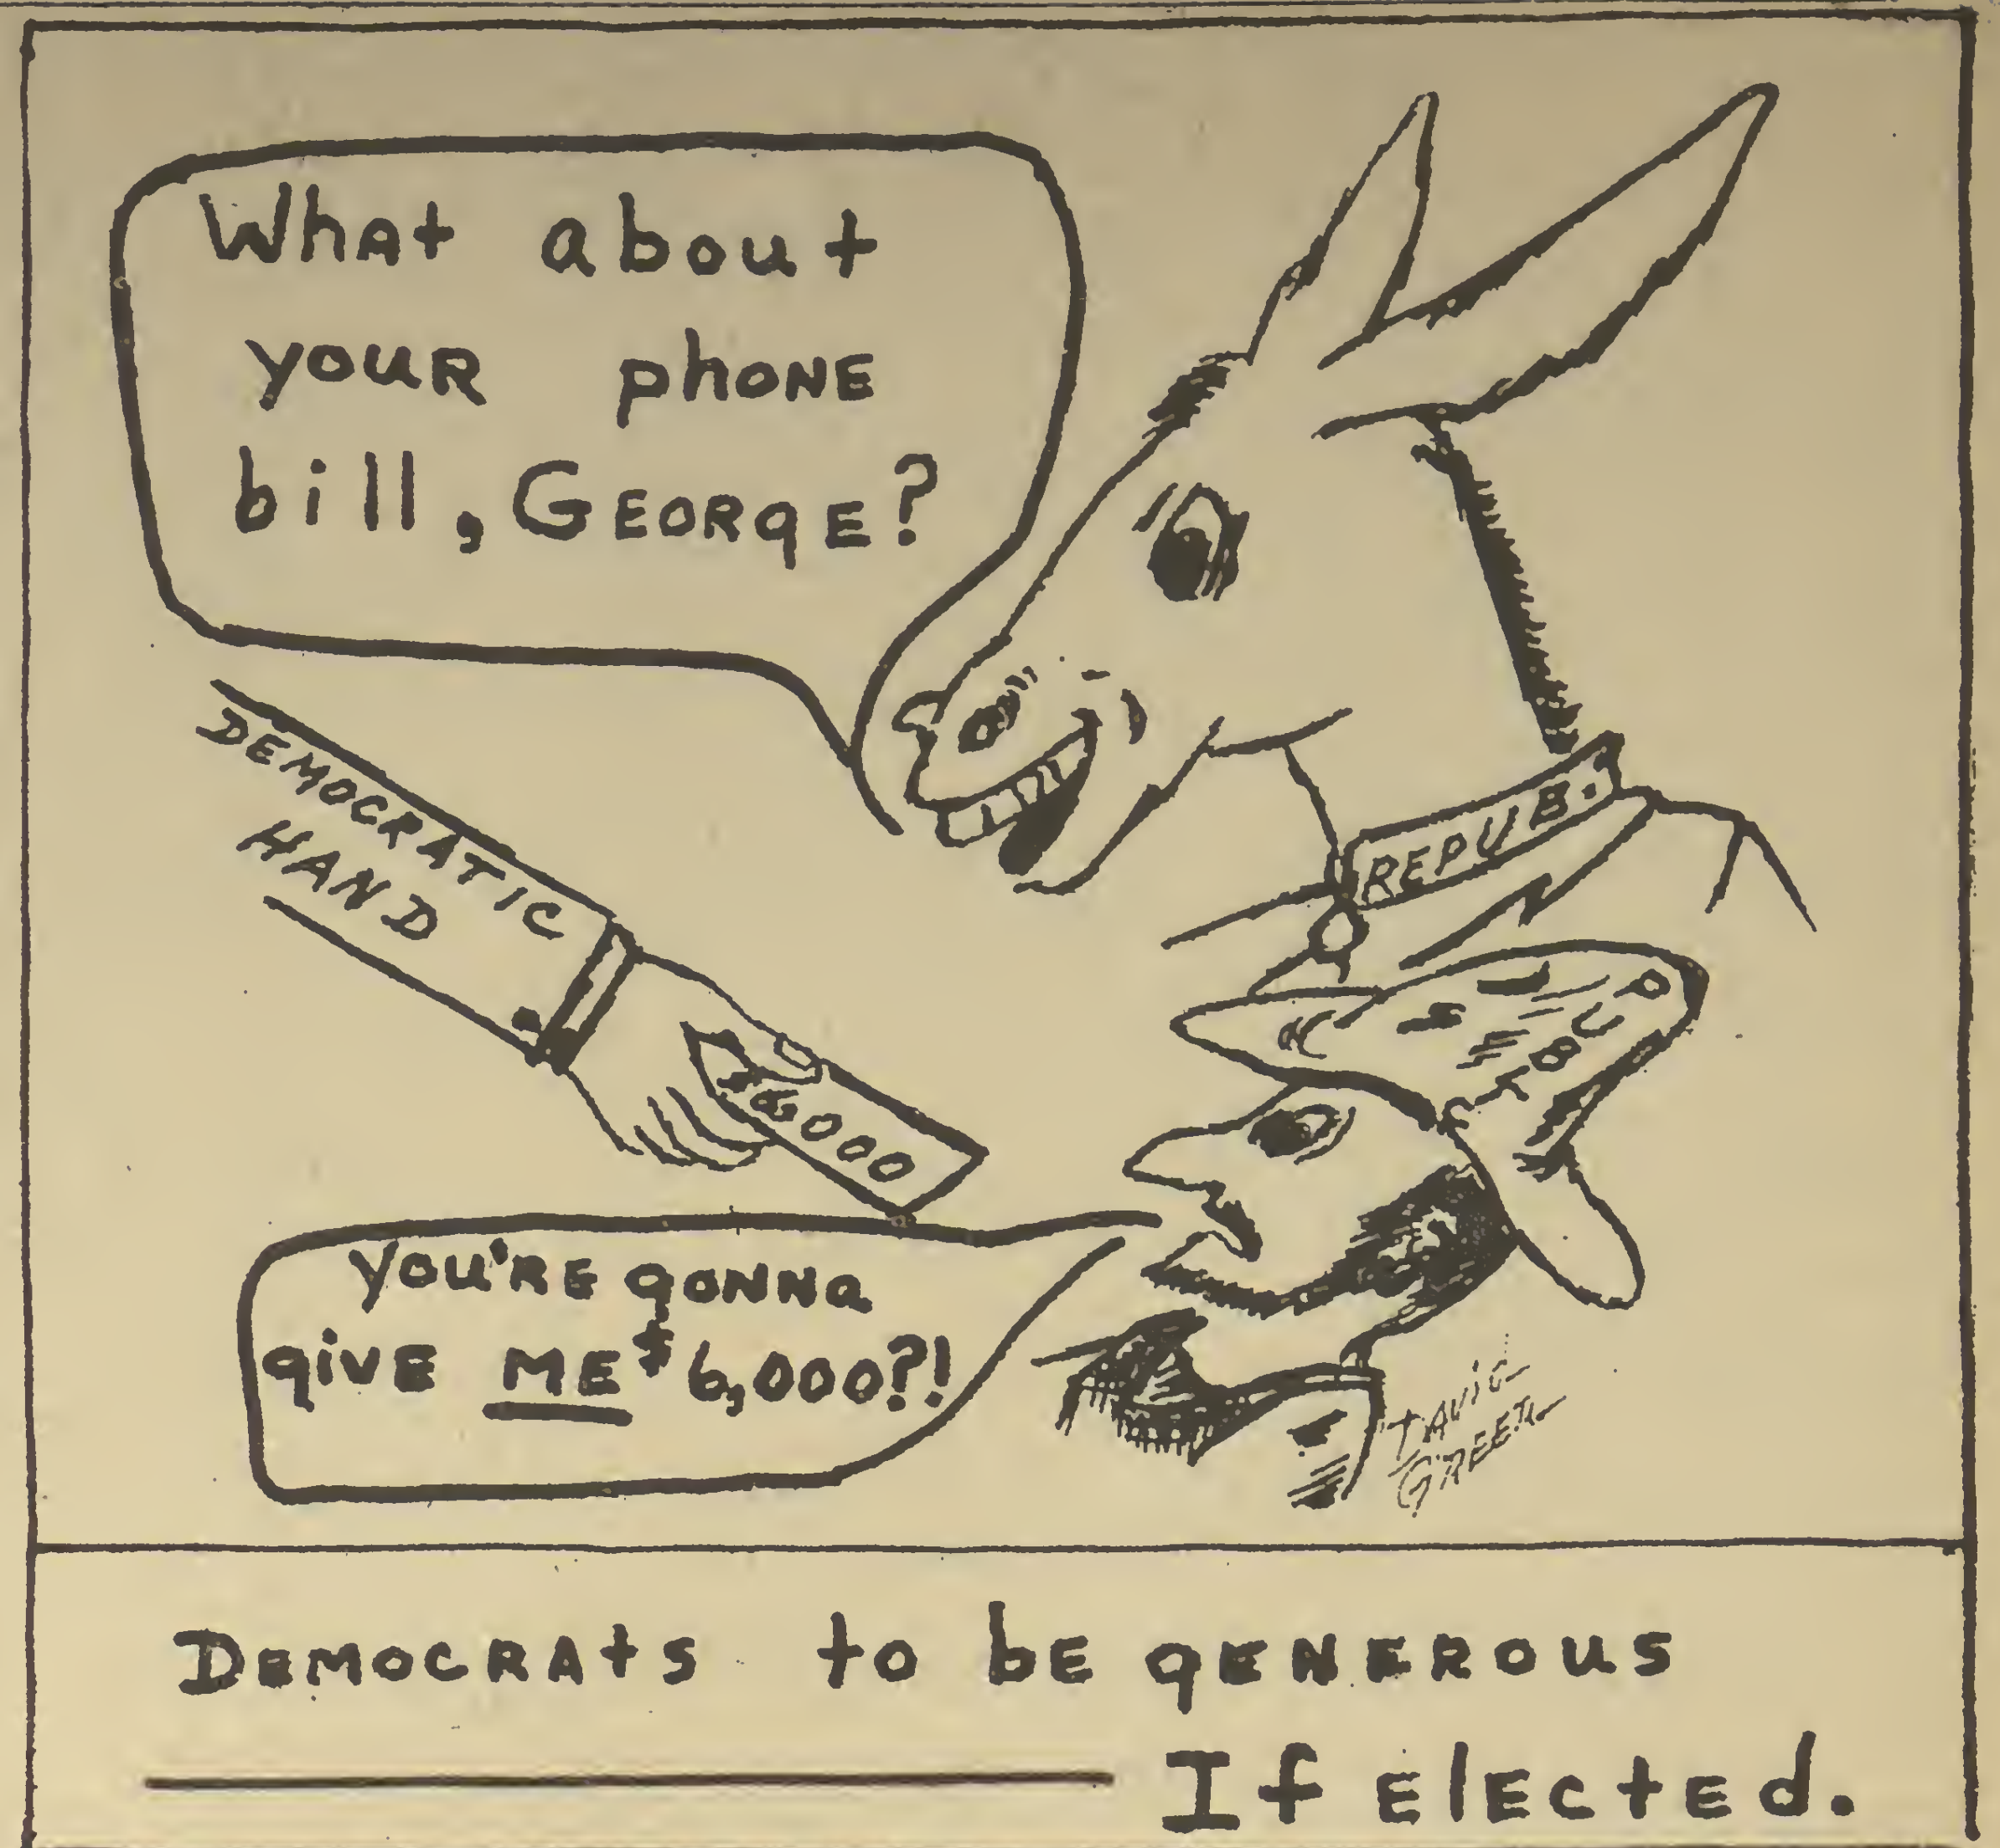 What about
your phone
bill, George?
DEMOCRATIC
HAND
REPUB.
$6000
you're gonna
give ME $6,000?!
GREEN
Democrats to be generous
If elected.